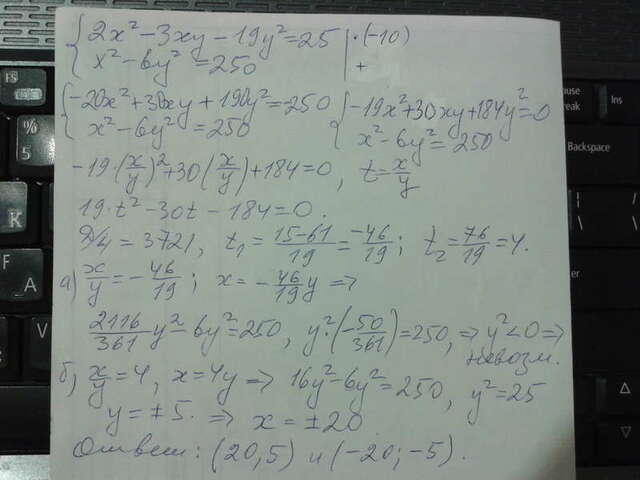 { 2x² - 3xy - 19y² = 25 | ·(-10)
x² - 6y² = 250 | +
{ -20x² + 30xy + 190y² = -250 { -19x² + 30xy + 184y² = 0
x² - 6y² = 250 x² - 6y² = 250
-19·(x/y)² + 30(x/y) + 184 = 0, t = x/y
19·t² - 30t - 184 = 0.
D/4 = 3721, t₁ = (15-61)/19 = -46/19; t₂ = 76/19 = 4.
а) x/y = -46/19; x = -46/19 y ⇒
2116/361 y² - 6y² = 250, y²·(-50/361) = 250, ⇒ y² < 0 ⇒
невозм.
б) x/y = 4, x = 4y ⇒ 16y² - 6y² = 250, y² = 25
y = ±5. ⇒ x = ±20
Ответ: (20,5) и (-20; -5).
FS
%
5
К
F
А
Pause
Break
Ins
Backspace